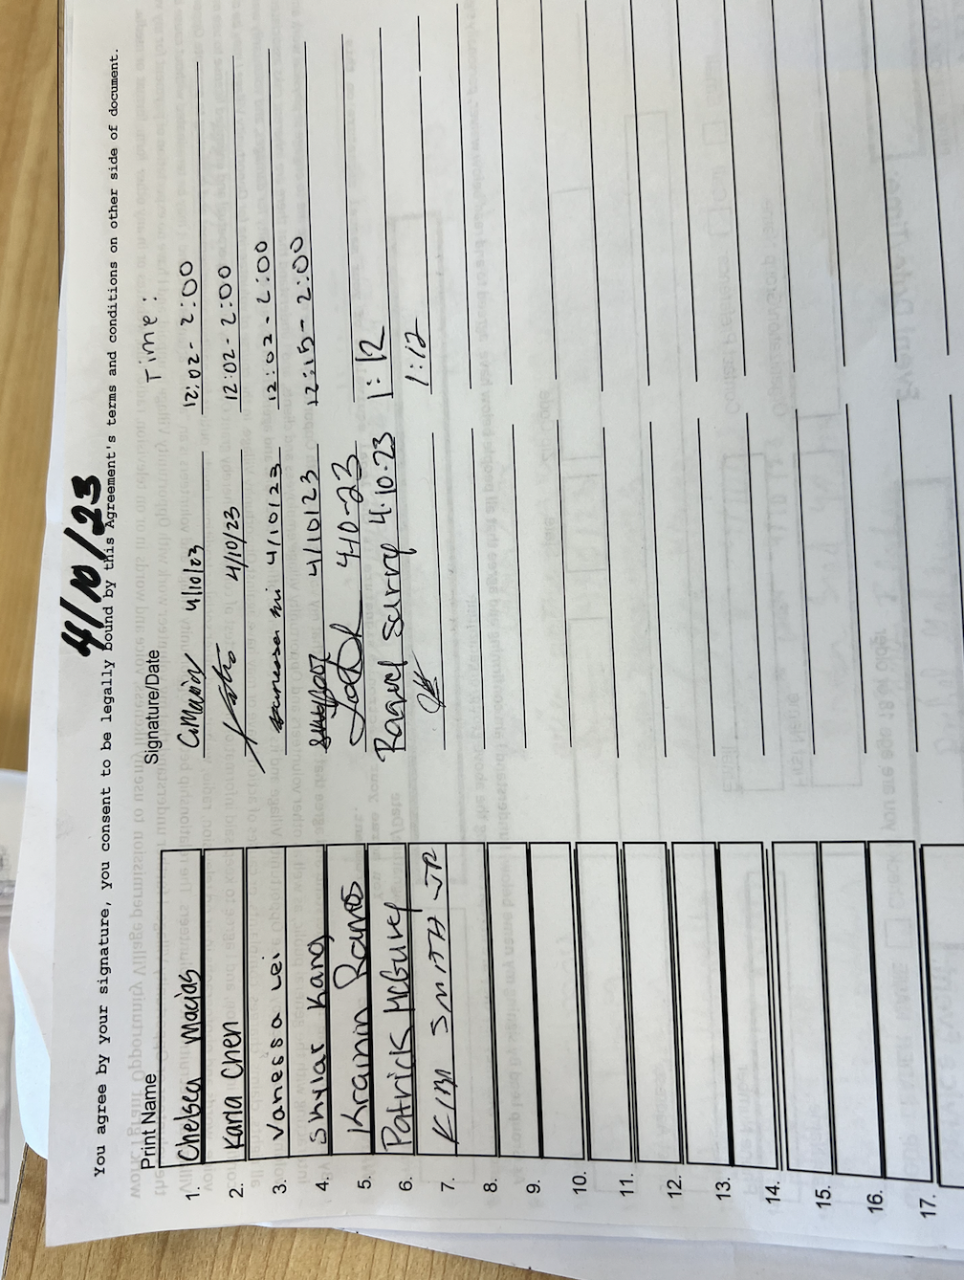 4/10/23
You agree by your signature, you consent to be legally bound by this Agreement's terms and conditions on other side of document.
Print Name Signature/Date Time:
1. Chelsea Macias 4/10/23 12:02-2:00
2. Karla Chen 4/10/23 12:02-2:00
3. Vanessa Lei 4/10/23 12:02-2:00
4. Shylar Kang 4/10/23 12:15-2:00
5. Ramos 4-10-23
6. Patrick Raquel 4.10.23 1:12
7. SMITH JR 1:12
8.
9.
10.
11.
12.
13.
14.
15.
16.
17.